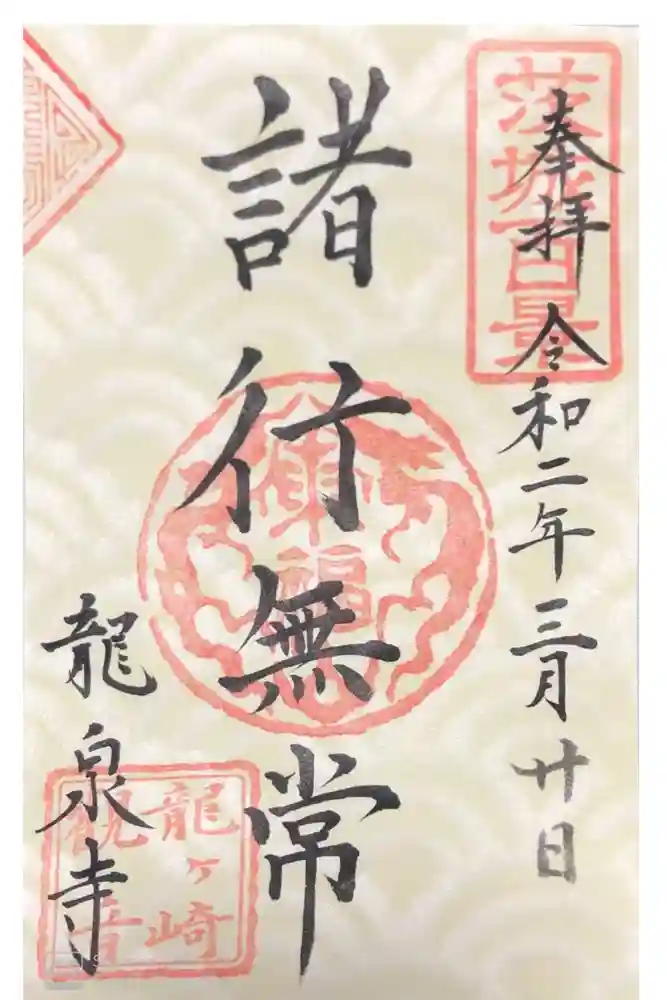 奉拝 令和二年三月廿日
茨城百景
諸行無常
龍泉寺
龍ヶ崎
観音